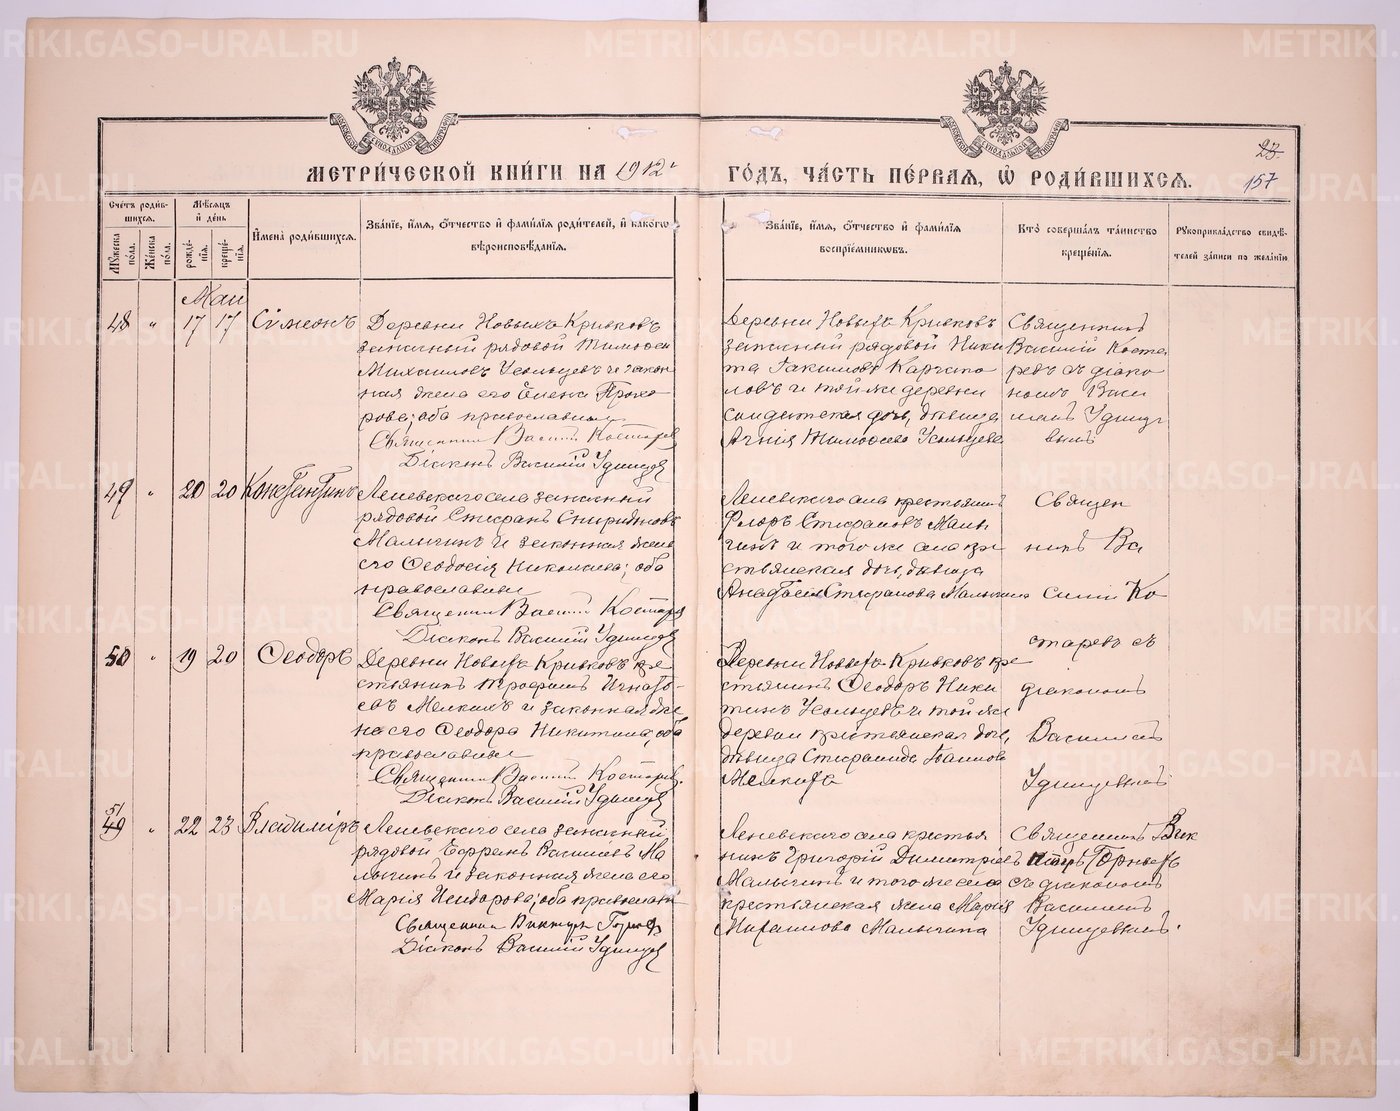 МЕТРИ́ЧЕСКОЙ КНИ́ГИ НА 1912 г.
ГО́ДЪ, ЧА́СТЬ ПЕ́РВАЯ, Ѡ РОДИ́ВШИХСЯ.
23.
157
Счетъ родив-
шихся.
Мѣсяцъ
и день
Имена родившихся.
Званіе, имя, отчество и фамилія родителей, и какого
вѣроисповѣданія.
Званіе, имя, отчество и фамилія
воспріемниковъ.
Кто совершалъ таинство
крещенія.
Рукоприкладство свидѣ-
телей записи по желанію
Мужеска
пола.
Женска
пола.
рожде-
нія.
креще-
нія.
Маи
48 " 17 17 Сѵмеонъ
Деревни Новыхъ Кривковъ
запасный рядовой Тимофей
Михаиловъ Усольцевъ и закон-
ная жена его Елена Прохо
рова; оба православные
Священникъ Василій Костаревъ
Діаконъ Василій Удинцевъ
Деревни Новыхъ Кривковъ
запасный рядовой Ники
та
ловъ и той же деревни
солдатская дочь, дѣвица
Агнія Тимофеева Усольцева
Священникъ
Василій Коста
ревъ съ діако
номъ Васи
ліемъ Удинце
вымъ
49 " 20 20 Константинъ
Леневскаго села запасный
рядовой Стефанъ Спиридоновъ
Малыгинъ и законная жена
его Ѳеодосія Николаева; оба
православные
Священникъ Василій Костаревъ
Діаконъ Василій Удинцевъ
Леневскаго села крестьянинъ
Флоръ Стефановъ Малы
гинъ и того же села кре
стьянская дочь, дѣвица
Анастасія Стефанова Малыгина
Священ
никъ Ва
силій Ко
старевъ съ
діакономъ
Василіемъ
Удинцевымъ
50 " 19 20 Ѳеодоръ
Деревни Новыхъ Кривковъ кре
стьянинъ Трофимъ Игнатъ-
евъ Мелкихъ и законная же
на его Ѳеодора Никитина, оба
православные
Священникъ Василій Костаревъ
Діаконъ Василій Удинцевъ
Деревни Новыхъ Кривковъ кре
стьянинъ Ѳеодоръ Ники
тинъ Усольцевъ и той же
деревни крестьянская дочь,
дѣвица Стефанида
Мелкихъ
51
49 " 22 23 Владиміръ
Леневскаго села запасный
рядовой Ефремъ Василіевъ Ма
лыгинъ и законная жена его
Марія Исидорова; оба православн
Священникъ Викторъ
Діаконъ Василій Удинцевъ
Леневскаго села крестья
нинъ Григорій Димитріевъ
Малыгинъ и того же села
крестьянская жена Марія
Малыгина
Священникъ Вик
торъ
съ діакономъ
Василіемъ
Удинцевымъ.